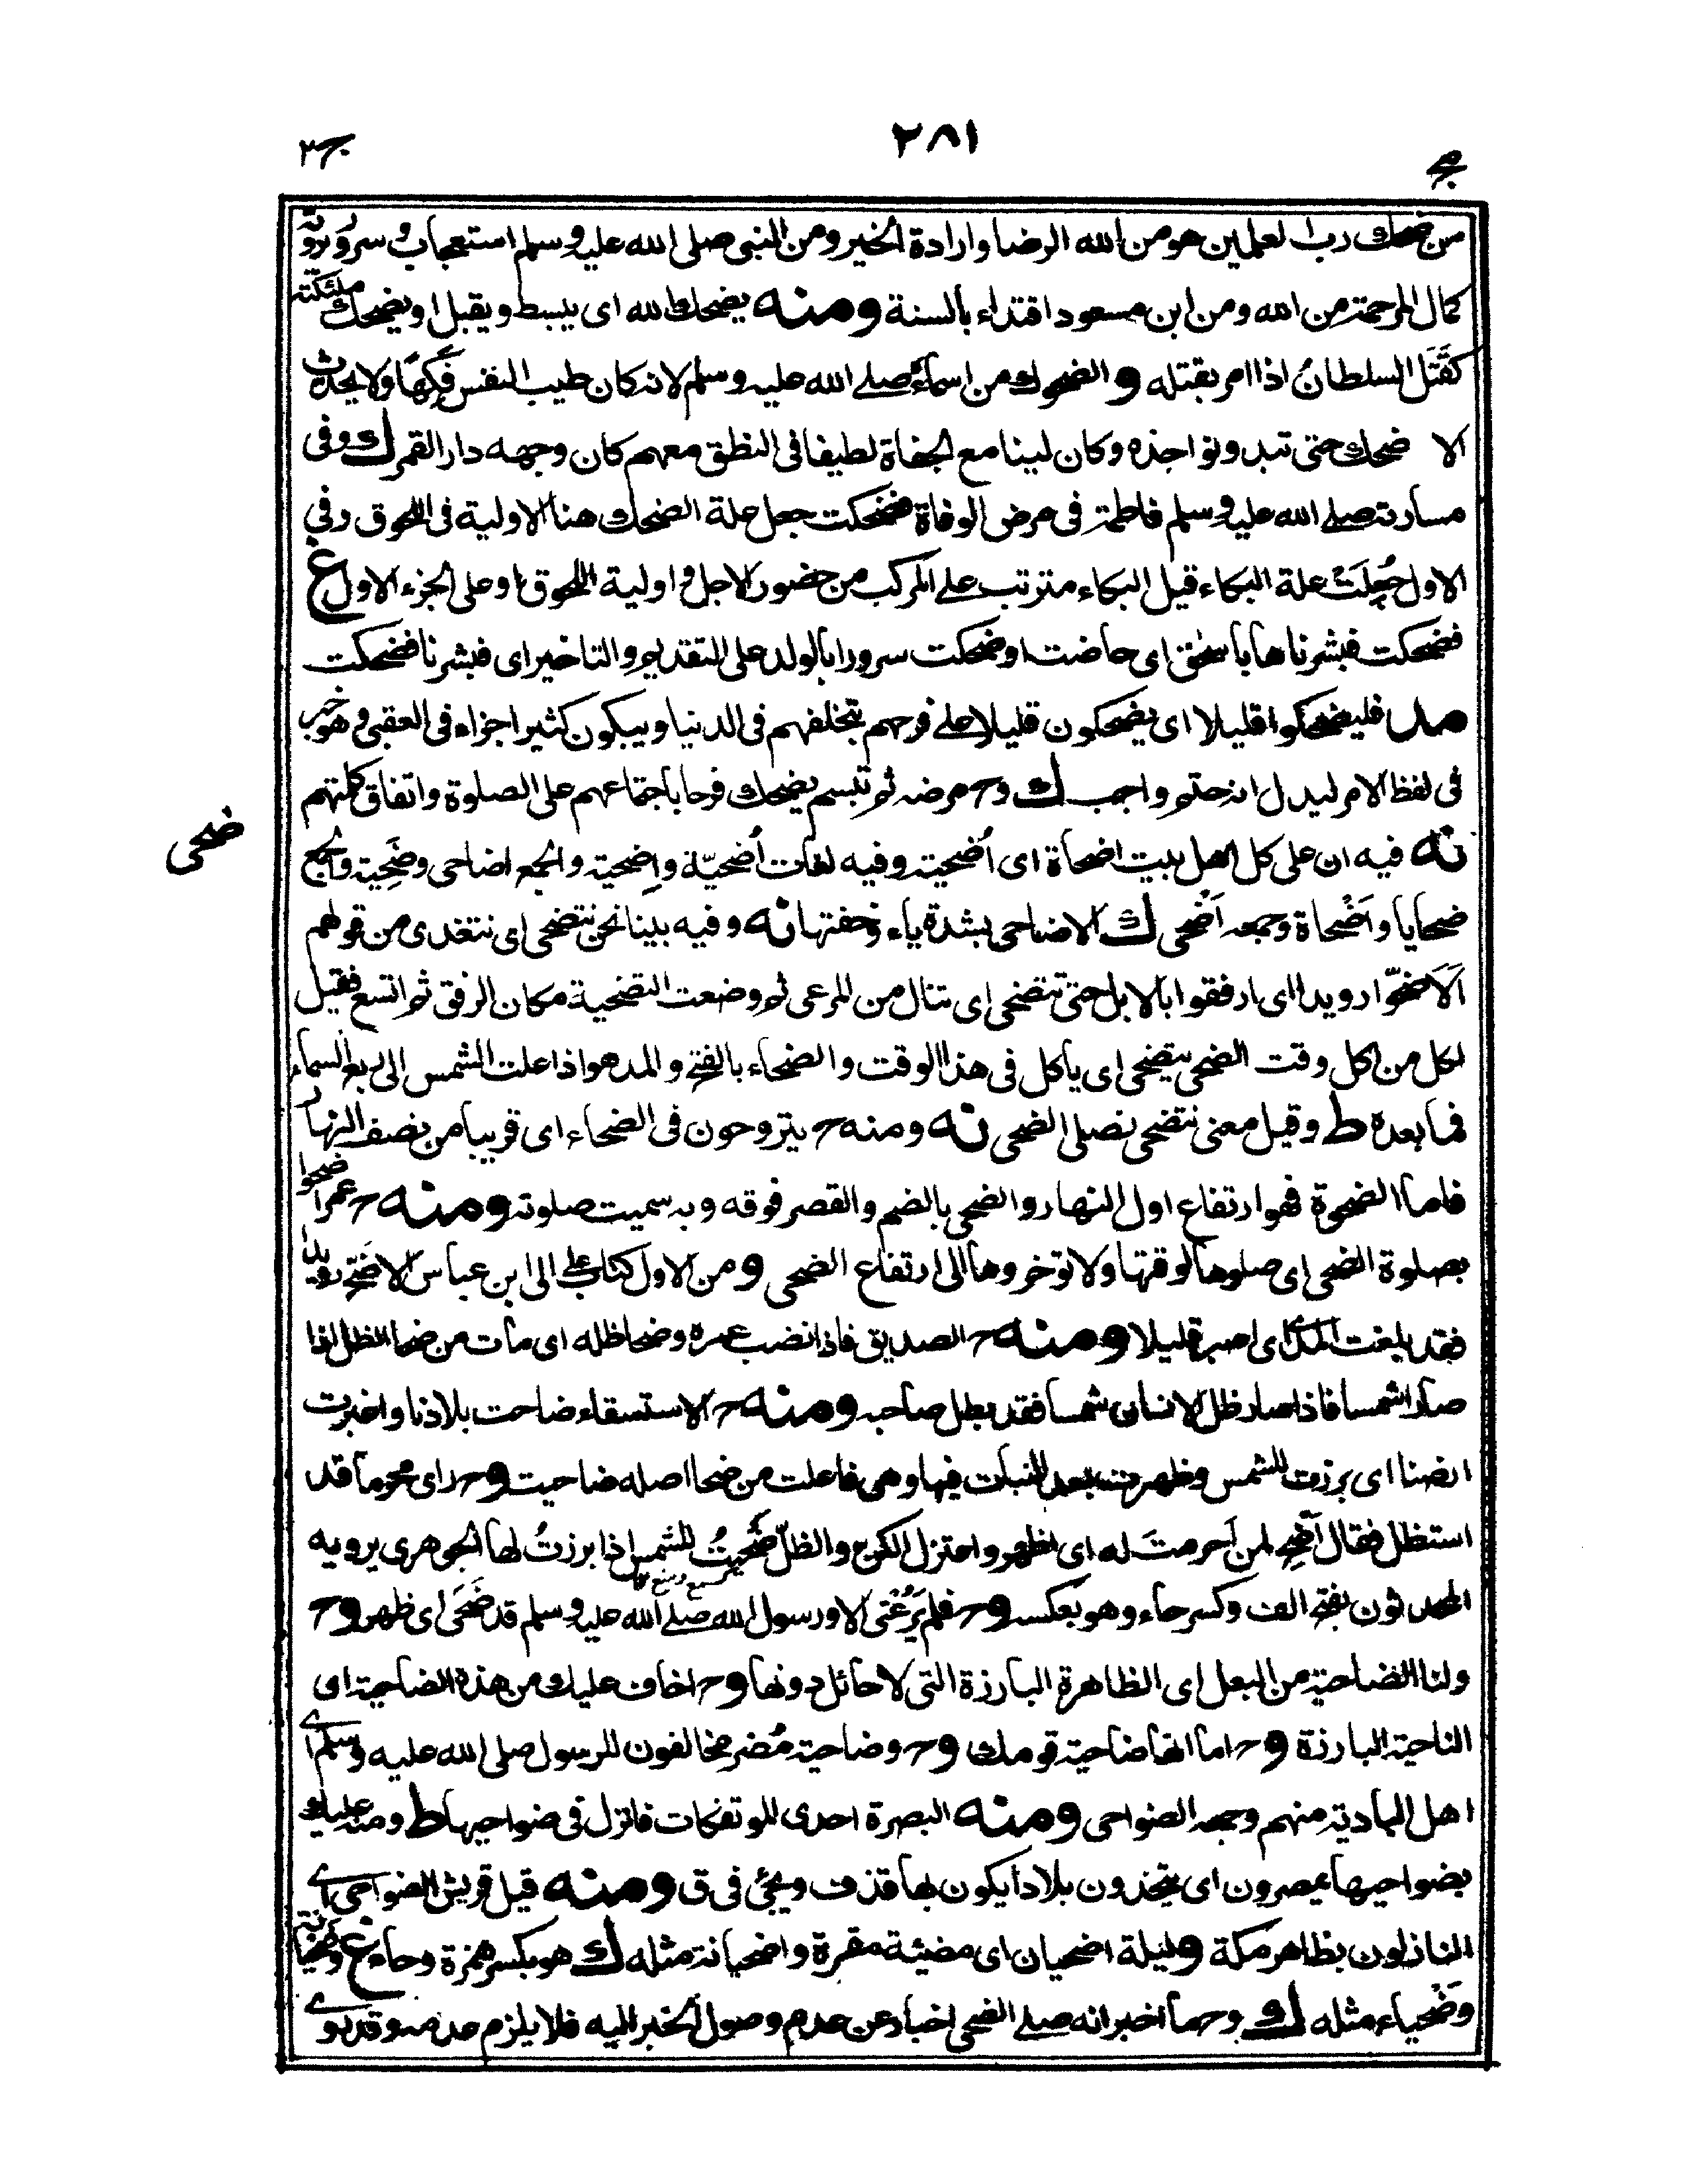 ج٣
٢٨١
من ضحك رب العلمين هو من الله الرضا وارادة الخير ومن النبى صلى الله عليه وسلم استعجاب وسرور برؤية
كمال المرحمة من الله ومن ابن مسعود اقتداء بالسنة ومنه يضحك الله اى يبسط ويقبل او يضحك ملئكته
كقَتَل السلطانُ اذا امر بقتله والضحوك من اسمائه صلى الله عليه وسلم لانه كان طيب النفس فَكِهًا ولا يحدث
الا ضحك حتى تبدو نواجذه وكان لينا مع الجفاة لطيفا فى النطق معهم كان وجهه دار القمر ك وفى
مسارته صلى الله عليه وسلم فاطمة فى مرض الوفاة فضحكت جعل علة الضحك هنا الاولية فى اللحوق وفى
الاول جُعِلَتْ علة البكاء قيل البكاء مترتب على المركب من حضور الاجل واولية اللحوق او على الجزء الاول غ
فضحكت فبشرناها باسحق اى حاضت او ضحكت سرورا بالولد على التقديم والتاخير اى فبشرنا فضحكت
مد فليضحكوا قليلا اى يضحكون قليلا على فرحهم بتخلفهم فى الدنيا ويبكون كثيرا جزاء فى العقبى وهو خبر
فى لفظ الامر ليدل انه حتم واجب ك وح مرضه ثم تبسم يضحك فرحا باجتماعهم على الصلوة واتفاق كلمتهم
ضحى
نه فيه ان على كل اهل بيت اضحاة اى اُضحية وفيه لغات اُضحيّة واِضحية والجمع اضاحى وضَحِية والجمع
ضحايا واَضْحاة وجمعه اَضْحى ك الاضاحى بشدة ياء وخفتها نه وفيه بينا نحن نتضحى اى نتغدى من قولهم
اَلَا ضَحّوا رويدا اى ارفقوا بالابل حتى تتضحى اى تنال من المرعى ثم وضعت التضحية مكان الرفق ثم اتسع فقيل
لكل من اكل وقت الضحى يتضحى اى يأكل فى هذا الوقت والضحاء بالفتح والمد هو اذا علت الشمس الى ربع السماء
فما بعده ط وقيل معنى نتضحى نصلى الضحى نه ومنه ح يتروحون فى الضحاء اى قريبا من نصف النهار
فاما الضحوة فهو ارتفاع اول النهار والضحى بالضم والقصر فوقه وبه سميت صلوته ومنه ح عمر اضحوا
بصلوة الضحى اى صلوها لوقتها ولا تؤخروها الى ارتفاع الضحى ومن الاول كتاب على الى ابن عباس الا ضَحِّ رويدا
فقد بلغت المدى اى اصبر قليلا ومنه ح الصديق فاذا نضب عمره وضحا ظله اى مات من ضحا الظل اذا
صار شمسا فاذا صار ظل الانسان شمسا فقد بطل صاحبه ومنه ح الاستسقاء ضاحت بلادنا واغبرت
ارضنا اى برزت للشمس وظهرت بعدم النبات فيها وهى فاعلت من ضحا اصله ضاحيت وح راى محرما قد
استظل فقال اَضْحِ لمن اَحرمتَ له اى اظهر واعتزل الكن والظلّ ضَحَيتُ للشمس اذا برزتُ لها الجوهرى يرويه
المحدثون بفتح الف وكسر حاء وهو بعكسه وح فلم يَرُعْنى الا ورسول الله صلى الله عليه وسلم قد ضَحَى اى ظهر وح
ولنا الضاحية من البعل اى الظاهرة البارزة التى لا حائل دونها وح اخاف عليك من هذه الضاحية اى
الناحية البارزة وح اما انها ضاحية قومك وح وضاحية مُضر مخالفون للرسول صلى الله عليه وسلم اى
اهل البادية منهم وجمعه الضواحى ومنه البصرة احدى المؤتفكات فانزل فى ضواحيها ط ومنه عليك
بضواحيها يمصرون اى يتخذون بلادا يكون لها قذف ويجئ فى ق ومنه قيل قريش الضواحى اى
النازلون بظاهر مكة وليلة اضحيان اى مضيئة مقمرة واضحيانة مثله ك هو بكسر همزة وحاء غ وضحيانة
وضَحْياء مثله ك وح ما اخبر انه صلى الضحى اخبار عن عدم وصول الخبر اليه فلا يلزم عدمه وقد نو